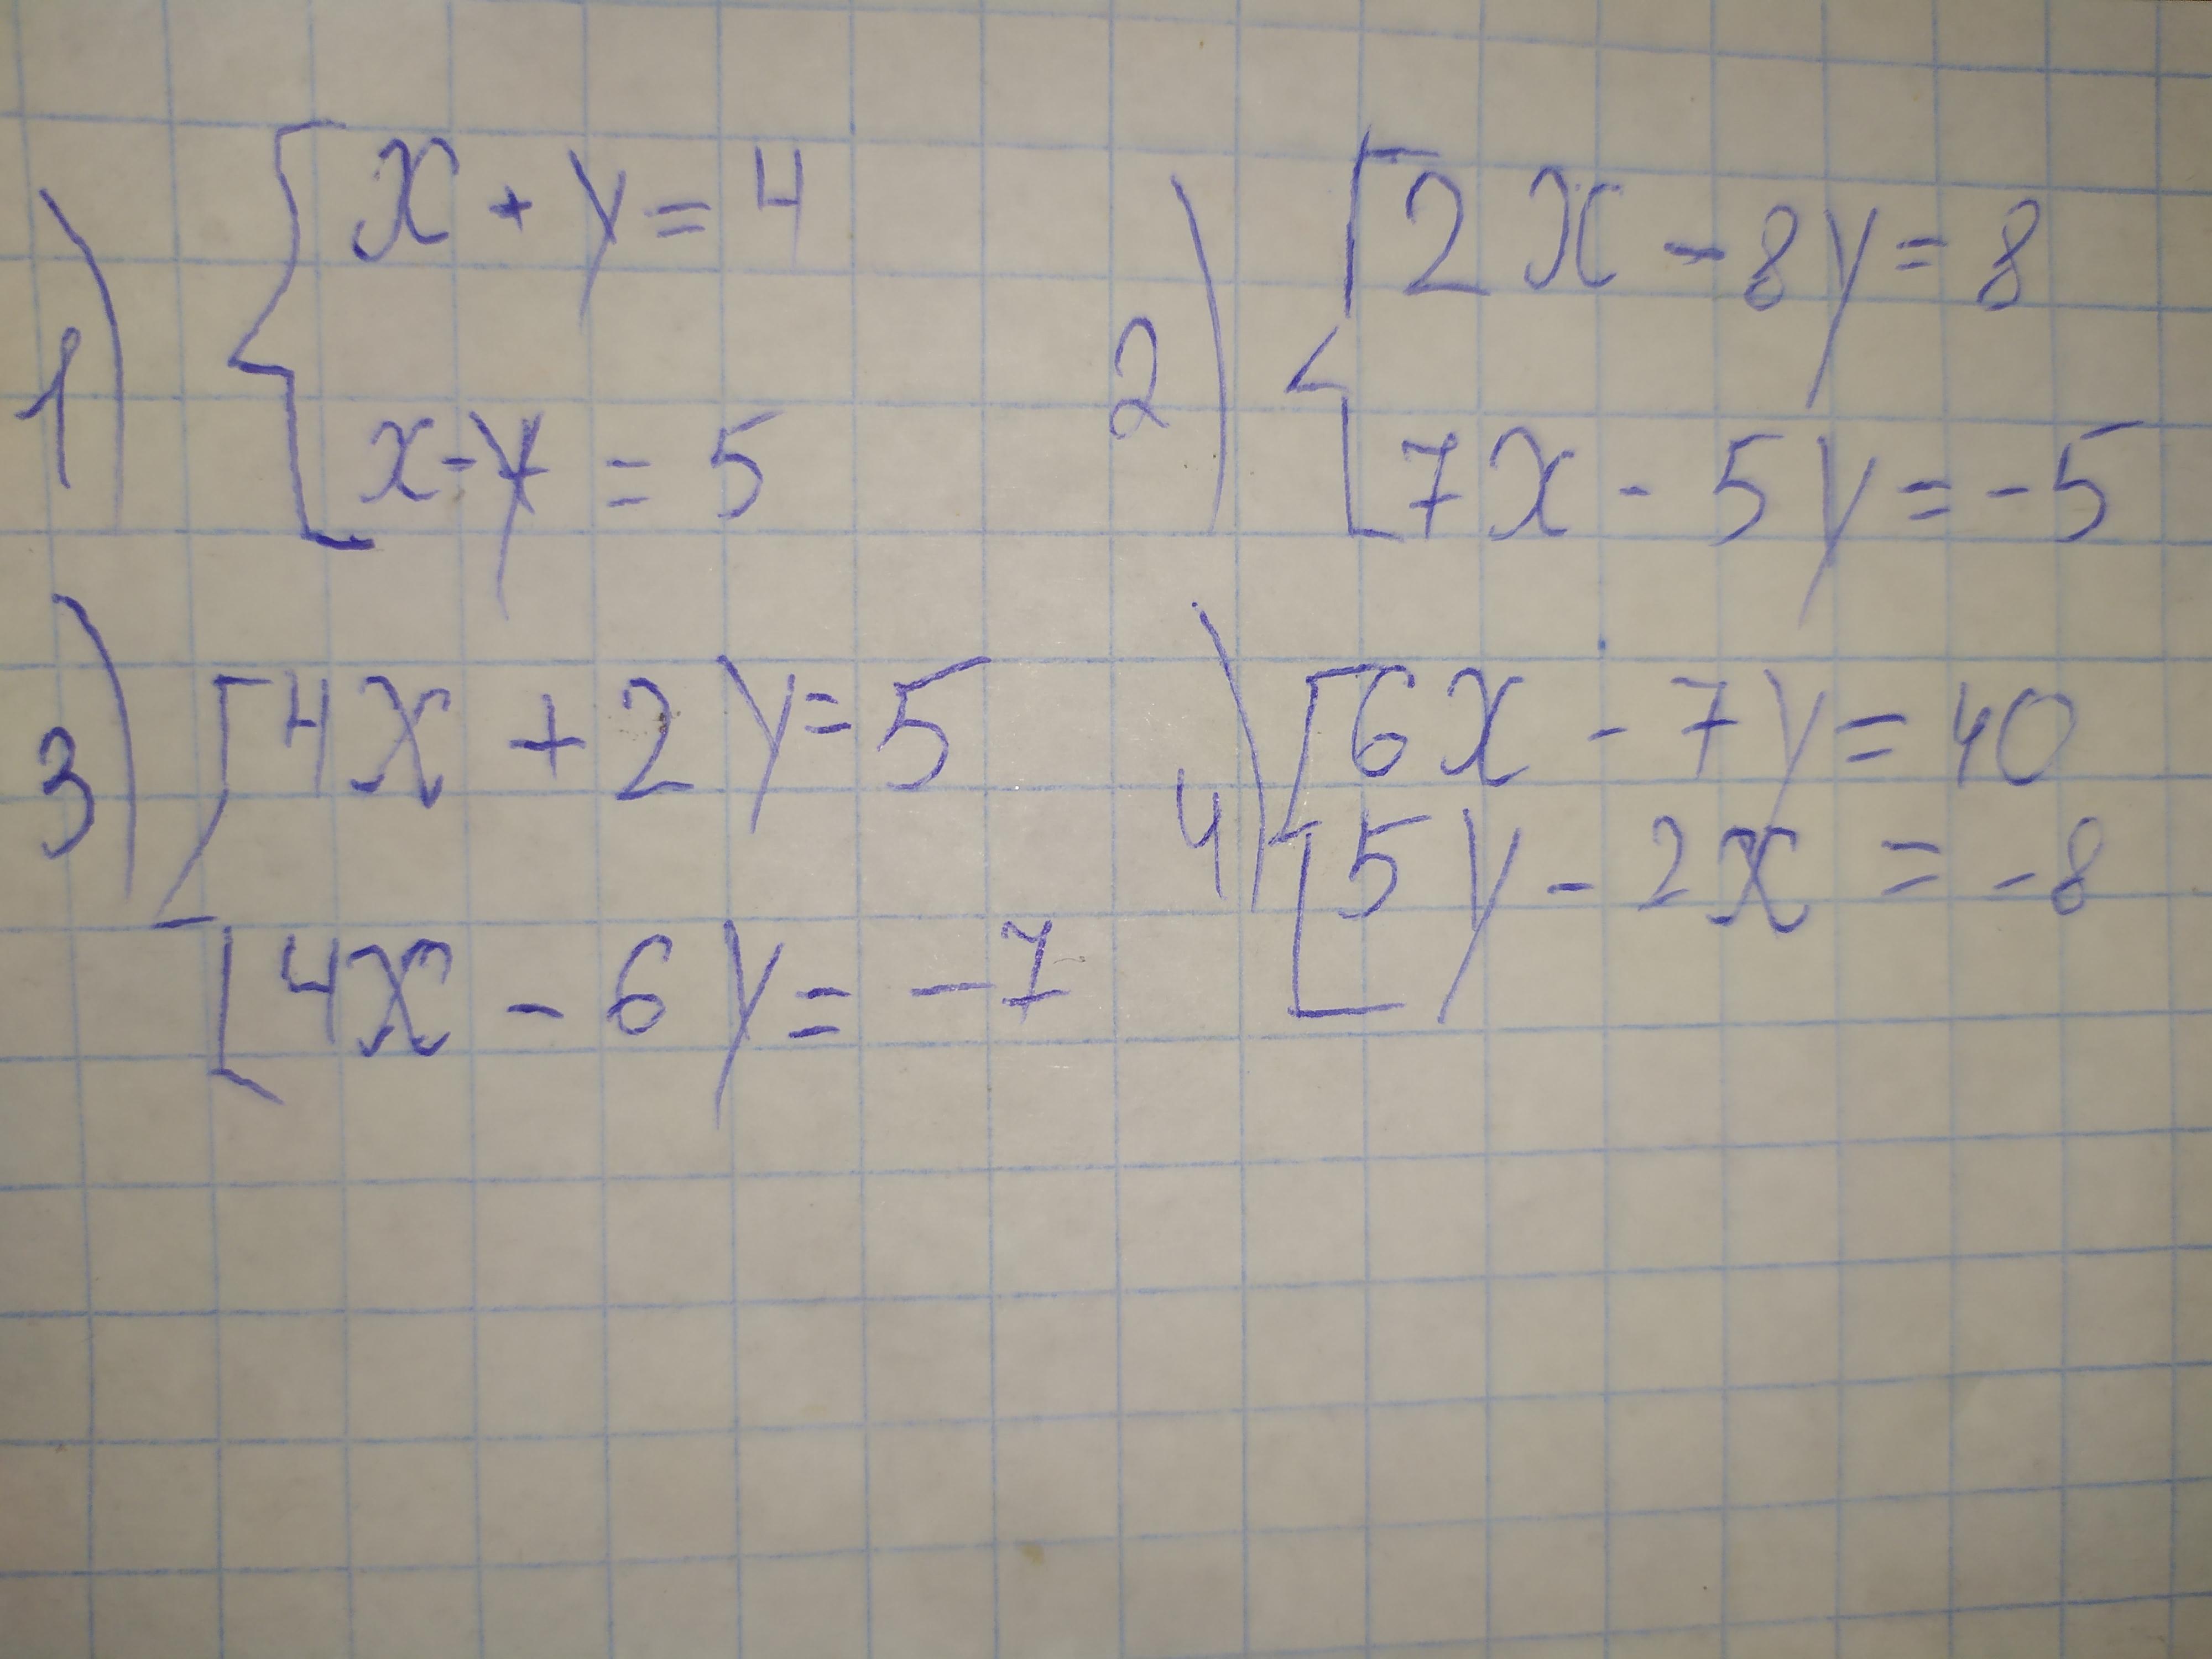 1) { x + y = 4
x - y = 5
2) { 2x - 8y = 8
7x - 5y = -5
3) { 4x + 2y = 5
4x - 6y = -7
4) { 6x - 7y = 40
5y - 2x = -8